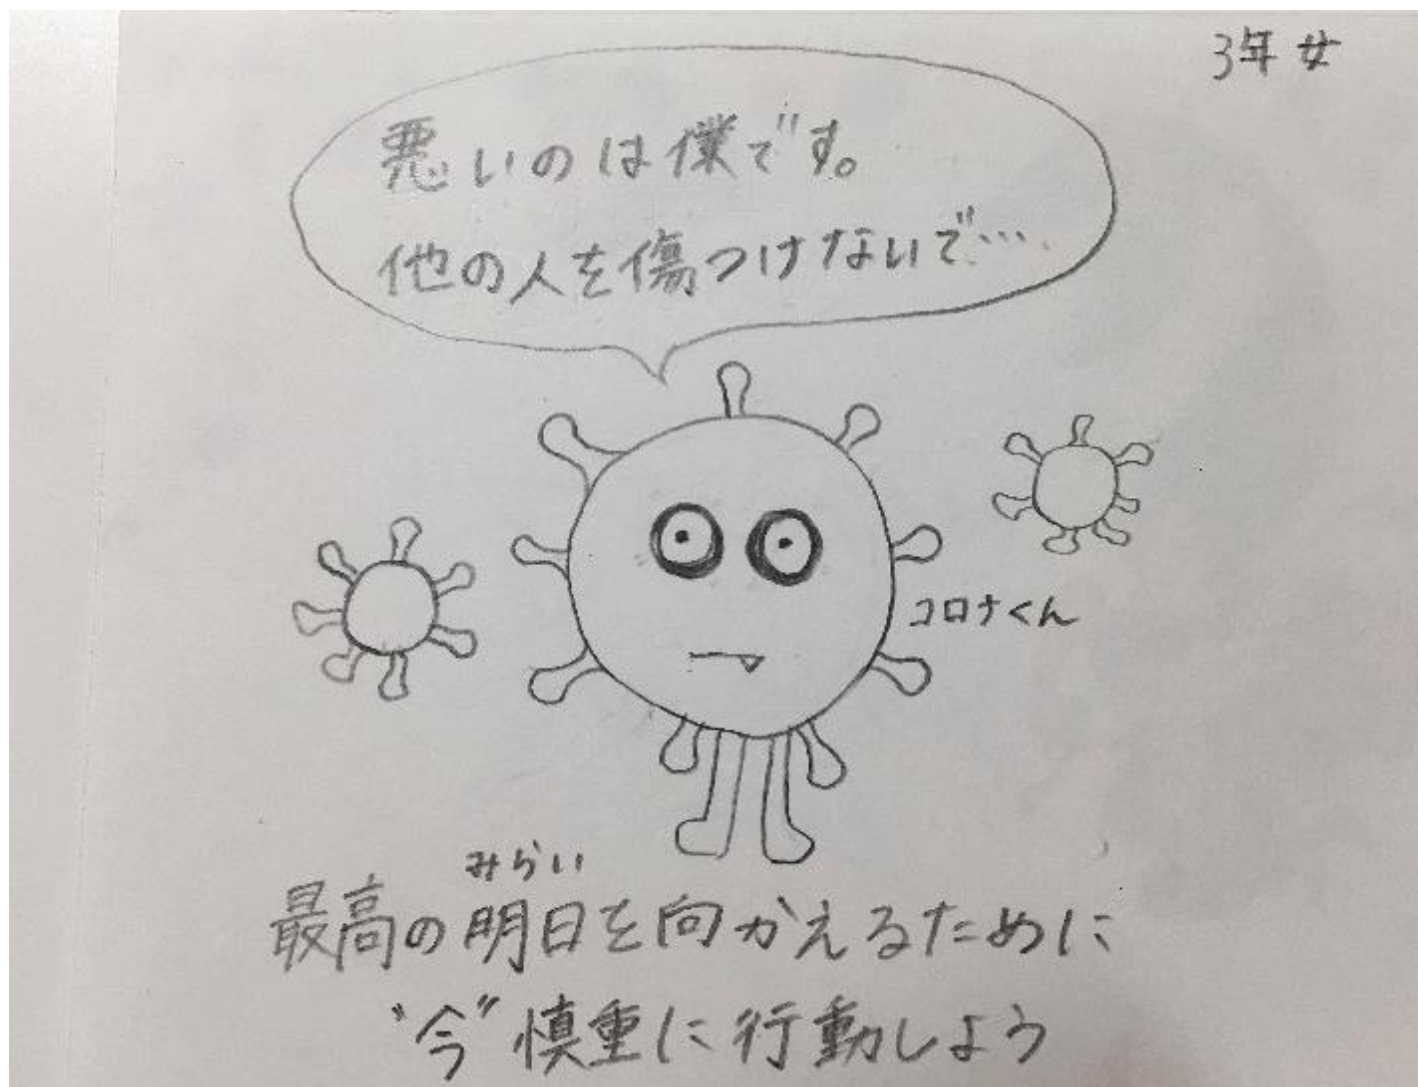 3年 女
悪いのは僕です。
他の人を傷つけないで…
コロナくん
みらい
最高の明日を向かえるために
"今"慎重に行動しよう